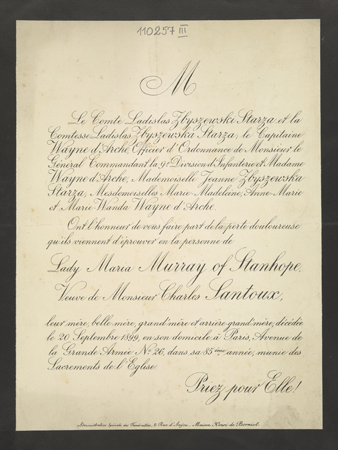 110257 III
M
Le Comte Ladislas Zbyszewski Starza et la
Comtesse Ladislas Zbyszewska Starza, le Capitaine
Wayne d'Arche, Officier d'Ordonnance de Monsieur le
Général Commandant la 9e Division d'Infanterie et Madame
Wayne d'Arche, Mademoiselle Jeanne Zbyszewska
Starza, Mesdemoiselles Marie-Madeleine, Anne-Marie
et Marie-Wanda Wayne d'Arche.
Ont l'honneur de vous faire part de la perte douloureuse
qu'ils viennent d'éprouver en la personne de
Lady Maria Murray of Stanhope,
Veuve de Monsieur Charles Santoux,
leur mère, belle-mère, grand'mère et arrière-grand'mère, décédée
le 20 Septembre 1899, en son domicile à Paris, Avenue de
la Grande Armée No 26, dans sa 85ème année, munie des
Sacrements de l'Eglise.
Priez pour Elle!
Administration Spéciale des Funérailles, 8 Rue d'Anjou, Maison Henri de Borniol